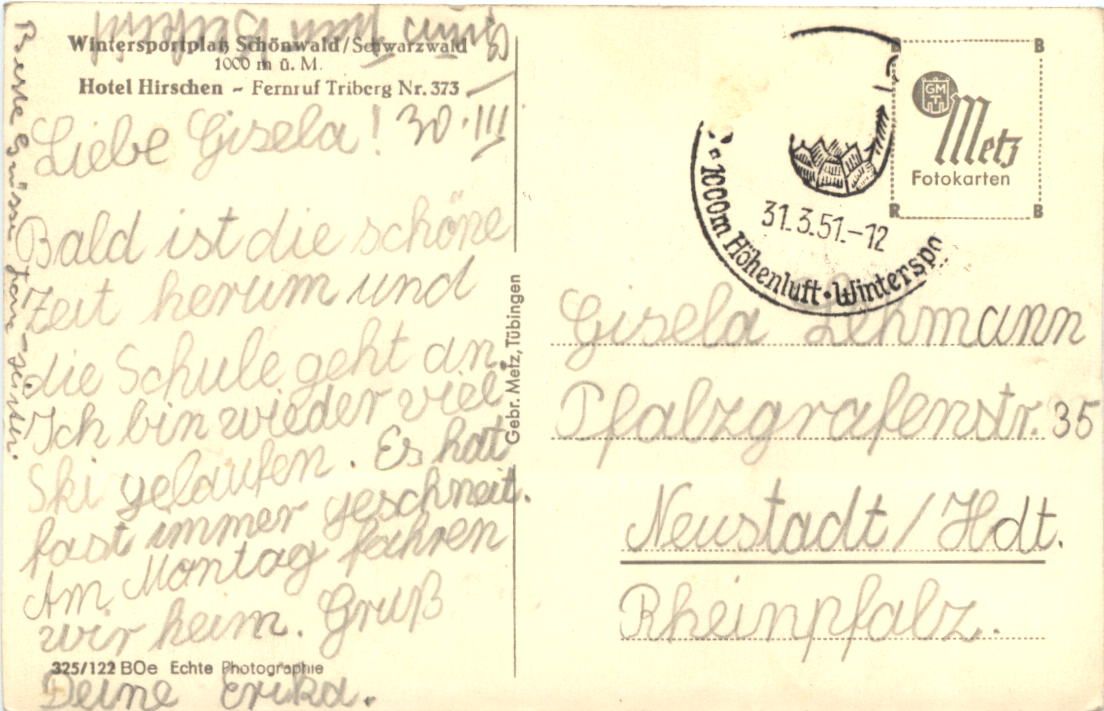 Wintersportplatz Schönwald/Schwarzwald
1000 m ü. M.
Hotel Hirschen – Fernruf Triberg Nr. 373
Liebe Gisela! 30.III
Bald ist die schöne
Zeit herum und
die Schule geht an.
Ich bin wieder viel
Ski gelaufen. Es hat
fast immer geschneit.
Am Montag fahren
wir heim. Gruß
325/122 BOe Echte Photographie
Deine Erika.
Beste Grüsse
Gebr. Metz, Tübingen
1000m Höhenluft • Winterspo
31.3.51.-12
B
GMT
Metz
Fotokarten
R B
Gisela Lehmann
Pfalzgrafenstr. 35
Neustadt/Hdt.
Rheinpfalz.